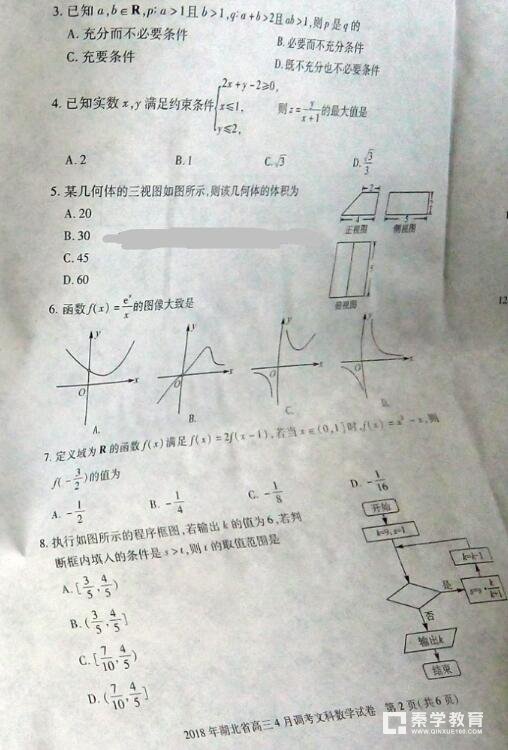 3. 已知a,b∈R,p:a>1且b>1,q:a+b>2且ab>1,则p是q的
A. 充分而不必要条件
B. 必要而不充分条件
C. 充要条件
D. 既不充分也不必要条件
4. 已知实数x,y满足约束条件{2x+y-2≥0, x≤1, y≤2, 则z=y/(x+1)的最大值是
A. 2
B. 1
C. √3
D. √3/3
5. 某几何体的三视图如图所示,则该几何体的体积为
A. 20
B. 30
C. 45
D. 60
2
4
正视图
5
侧视图
5
俯视图
6. 函数f(x)=e^x/x的图像大致是
y
O
x
A.
y
O
x
B.
y
O
x
C.
y
O
x
D.
7. 定义域为R的函数f(x)满足f(x)=2f(x-1),若当x∈(0,1]时,f(x)=x²-x,则
f(-3/2)的值为
A. -1/2
B. -1/4
C. -1/8
D. -1/16
8. 执行如图所示的程序框图,若输出k的值为6,若判
断框内填入的条件是s>t,则t的取值范围是
A. [3/5,4/5)
B. (3/5,4/5]
C. [7/10,4/5)
D. (7/10,4/5]
开始
k=9,s=1
k=k-1
是
s=s·k/(k+1)
否
输出k
结束
2018年湖北省高三4月调考文科数学试卷 第2页(共6页)
12
秦学教育
WWW.QINXUE100.COM